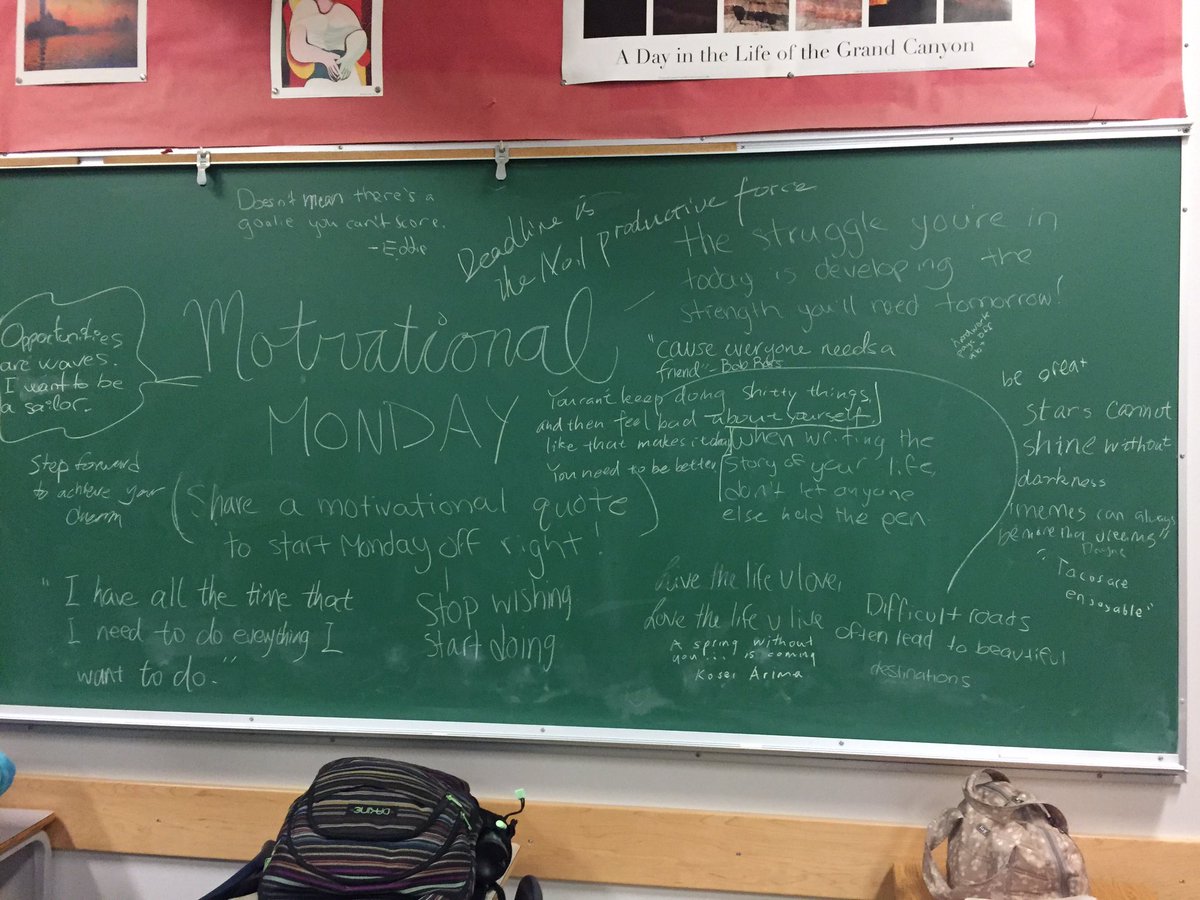 A Day in the Life of the Grand Canyon
Doesn't mean there's a
goalie you can't score.
- Eddie
Deadline is
the No.1 productive force
the struggle you're in
today is developing the
strength you'll need tomorrow!
Opportunities
are waves.
I want to be
a sailor.
Motivational
MONDAY
(Share a motivational quote
to start Monday off right!)
"cause everyone needs a
friend" - Bob Ross
You can't keep doing shitty things,
and then feel bad about yourself
like that makes it okay
You need to be better
when writing the
story of your life,
don't let anyone
else hold the pen.
hardwork
pays off
be great
stars cannot
shine without
darkness
memes can always
be more than
"Tacos are
enjoyable"
Step forward
to achieve your
dream
"I have all the time that
I need to do everything I
want to do."
Stop wishing
Start doing
Live the life u love,
Love the life u live
A spring without
you... is coming
Kosei Arima
Difficult roads
often lead to beautiful
destinations
DAKINE